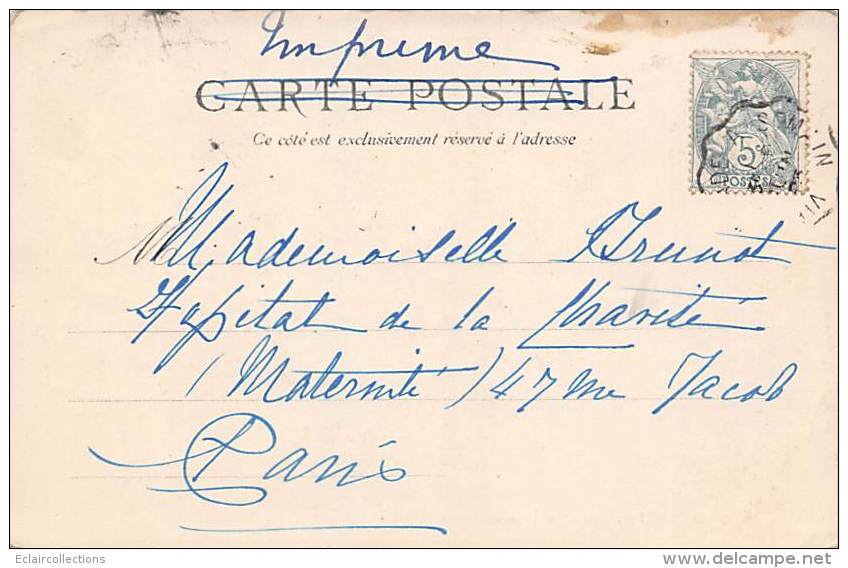 Imprimé
CARTE POSTALE
Ce côté est exclusivement réservé à l'adresse
5
POSTES
Mademoiselle Brunot
Hopital de la Charité
(Maternité) 47 rue Jacob
Paris
Eclaircollections
www.delcampe.net